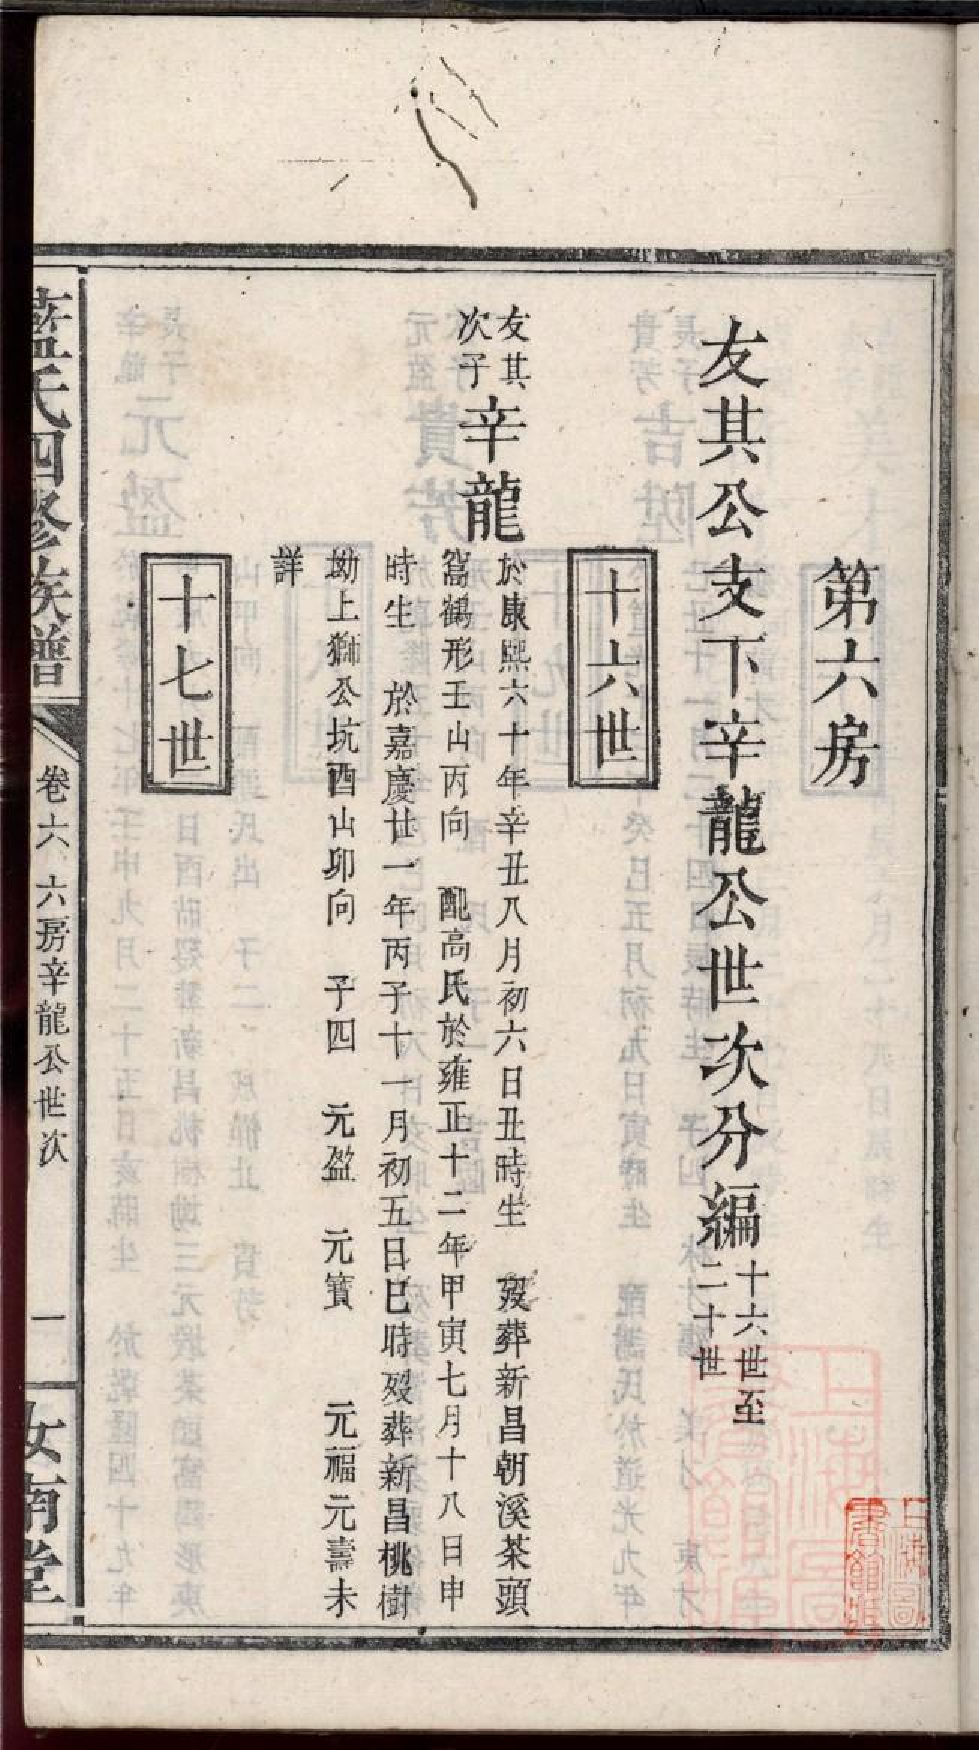 第六房
友其公支下辛龍公世次分編
十六世至
二十世
十六世
友其
次子
辛龍
於康熙六十年辛丑八月初六日丑時生　歿葬新昌朝溪茶頭
窩鶴形壬山丙向　配高氏於雍正十二年甲寅七月十八日申
時生　於嘉慶廿一年丙子十一月初五日巳時歿葬新昌桃樹
坳上獅公坑酉山卯向　子四　元盈　元寳　元福元壽未
詳
十七世
藍氏四修族譜
卷六　六房辛龍公世次
一
汝南堂
上海圖
書館藏